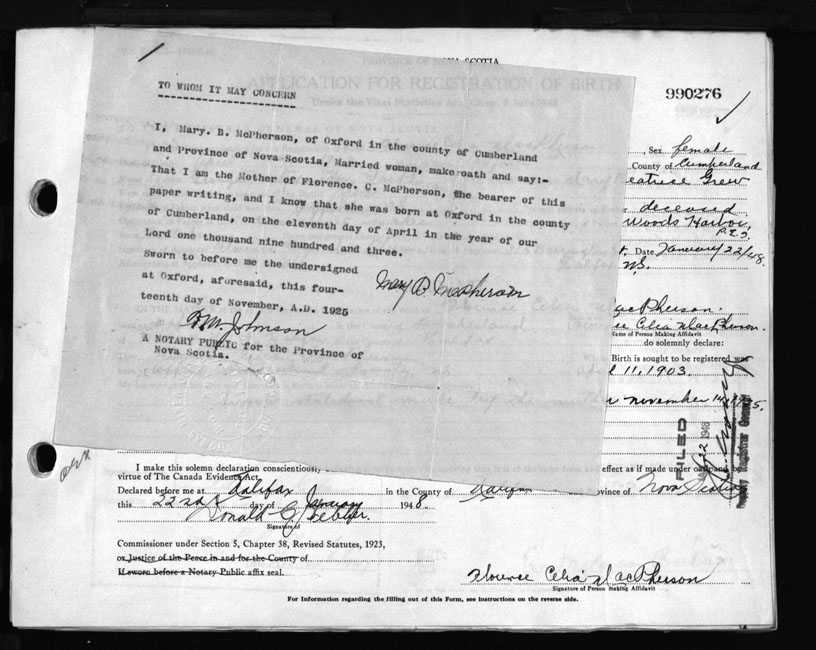 PROVINCE OF NOVA SCOTIA
APPLICATION FOR REGISTRATION OF BIRTH
990276
TO WHOM IT MAY CONCERN
I, Mary. B. McPherson, of Oxford in the county of Cumberland
and Province of Nova Scotia, Married woman, make oath and say:-
That I am the Mother of Florence. C. McPherson, the bearer of this
paper writing, and I know that she was born at Oxford in the county
of Cumberland, on the eleventh day of April in the year of our
Lord one thousand nine hundred and three.
Sworn to before me the undersigned
at Oxford, aforesaid, this four-
teenth day of November, A.D. 1925
Mary B McPherson
Johnson
A NOTARY PUBLIC for the Province of
Nova Scotia.
Sex female
County of Cumberland
Beatrice Grew
deceased
Woods Harbor,
P.E.I.
Date January 22/48.
N.S.
MacPherson.
Celia MacPherson.
Name of Person Making Affidavit
do solemnly declare:
Birth is sought to be registered was
11, 1903.
November 14, 1925.
FILED
1948
Deputy Registrar General
I make this solemn declaration conscientiously,
effect as if made under oath and by
virtue of The Canada Evidence Act.
Declared before me at Halifax in the County of Halifax Province of Nova Scotia
this 22nd day of January 1948.
Donald C
Signature of
Commissioner under Section 5, Chapter 38, Revised Statutes, 1923,
or Justice of the Peace in and for the County of
If sworn before a Notary Public affix seal.
Florence Celia MacPherson
Signature of Person Making Affidavit
For Information regarding the filling out of this Form, see instructions on the reverse side.